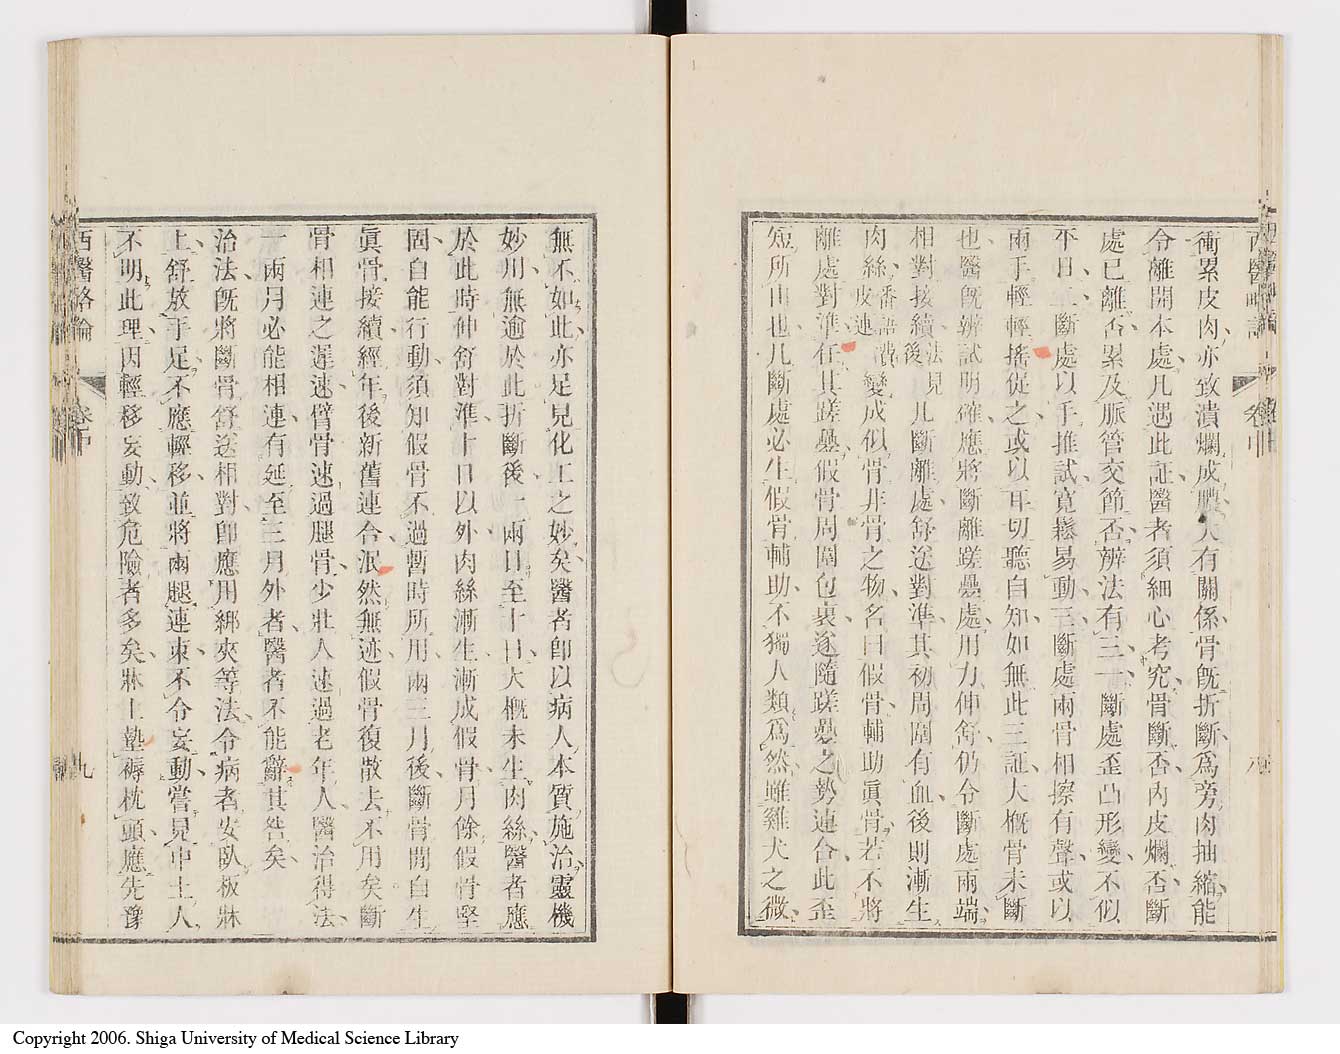 西醫略論
卷中
八
衝累皮肉亦致潰爛成膿大有關係骨旣折斷爲旁肉抽縮能
令離開本處凡遇此証醫者須細心考究骨斷否內皮爛否斷
處已離否累及脈管交節否辨法有三一斷處歪凸形變不似
平日二斷處以手推試寬鬆易動三斷處兩骨相擦有聲或以
兩手輕輕搖從之或以耳切聽自知如無此三証大概骨未斷
也醫旣辨試明確應將斷離蹉疊處用力伸舒仍令斷處兩端
相對接續法見後凡斷離處舒送對準其初周圍有血後則漸生
肉絲番語謂皮連變成似骨非骨之物名曰假骨輔助眞骨若不將
離處對準任其蹉疊假骨周圍包裹遂隨蹉疊之勢連合此歪
短所由也凡斷處必生假骨輔助不獨人類爲然雖雞犬之微
無不如此亦足見化工之妙矣醫者卽以病人本質施治靈機
妙用無逾於此折斷後一兩日至十日大概未生肉絲醫者應
於此時伸舒對準十日以外肉絲漸生漸成假骨月餘假骨堅
固自能行動須知假骨不過暫時所用兩三月後斷骨開自生
眞骨接續經年後新舊連合泯然無迹假骨復散去不用矣斷
骨相連之遲速臂骨速過腿骨少壯人速過老年人醫治得法
一兩月必能相連有延至三月外者醫者不能辭其咎矣
治法旣將斷骨舒送相對卽應用綁夾等法令病者安臥板牀
上舒放手足不應輕移並將兩腿連束不令妄動嘗見中土人
不明此理因輕移妄動致危險者多矣牀上墊褥枕頭應先豫
西醫略論
卷中
九
Copyright 2006. Shiga University of Medical Science Library